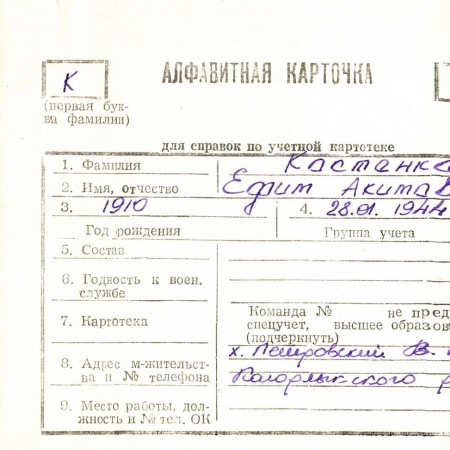 АЛФАВИТНАЯ КАРТОЧКА
К
(первая бук-
ва фамилии)
для справок по учетной картотеке
1. Фамилия Кастанк
2. Имя, отчество Ефим Акимав
3. 1910 4. 28.01.1944
Год рождения Группа учета
5. Состав
6. Годность к воен.
службе
Команда № не пред
7. Картотека спецучет, высшее образов
(подчеркнуть)
8. Адрес м-жительст-
ва и № телефона
х. Петровский В.
9. Место работы, дол-
жность и № тел. ОК